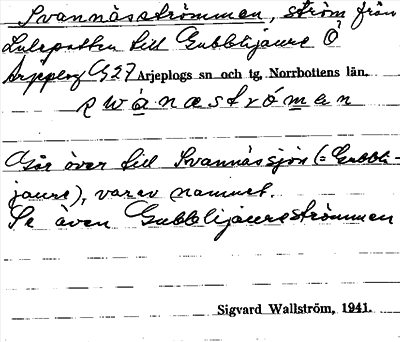 Svannäsströmmen, ström från
Lulepotten till Gubblijaure Ö
Arjeplog G27 Arjeplogs sn och tg, Norrbottens län.
swánæstrǒman
Går över till Svannässjön (= Gubbli-
jaure), varav namnet.
Se även Gubblijaureströmmen
Sigvard Wallström, 1941.